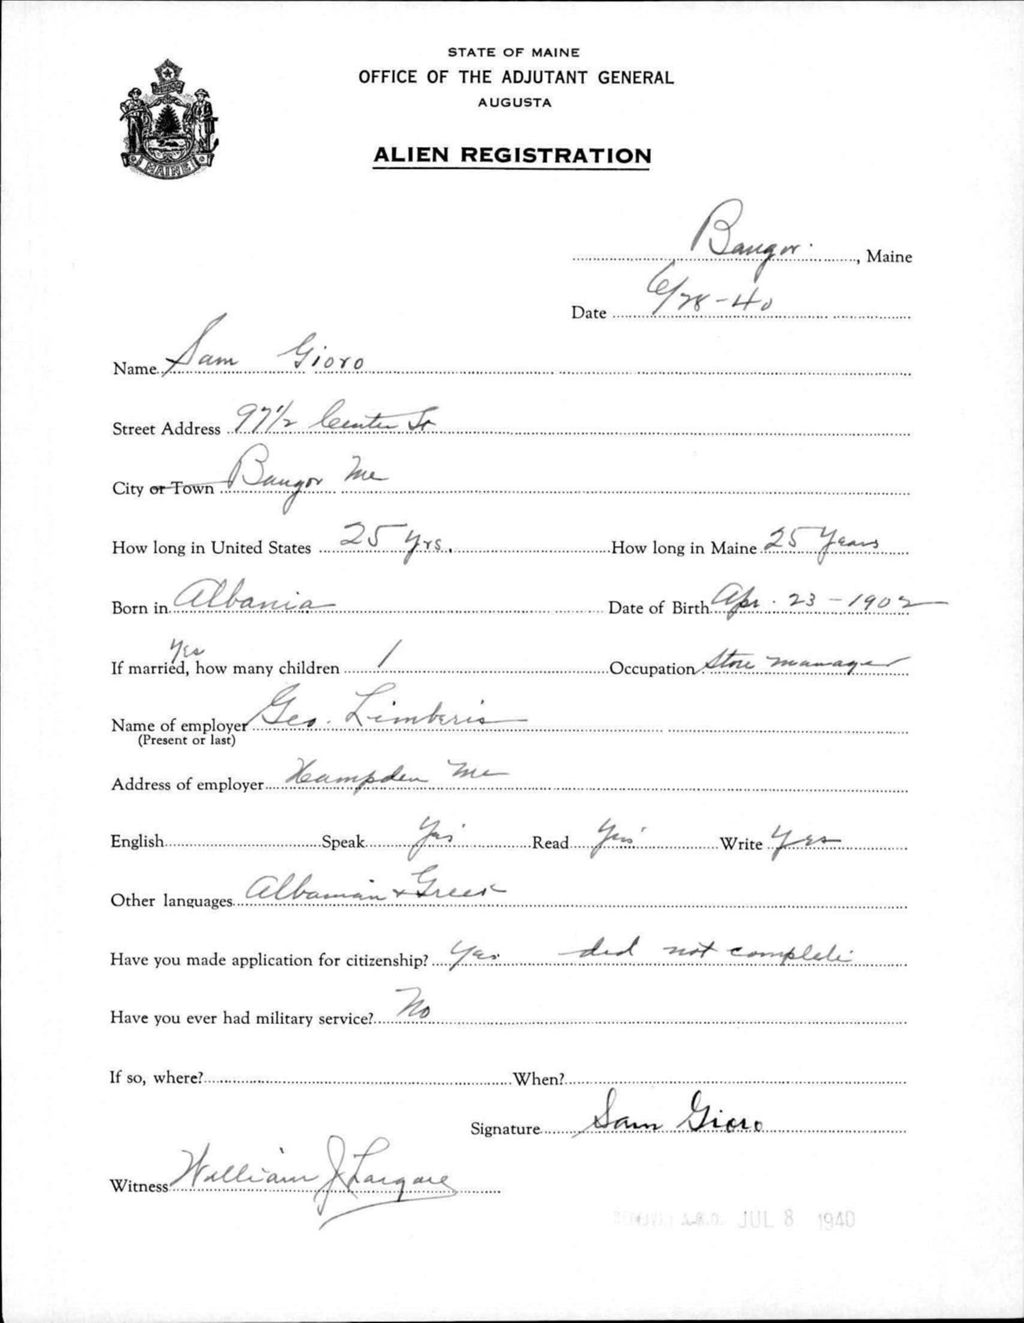 STATE OF MAINE
OFFICE OF THE ADJUTANT GENERAL
AUGUSTA
ALIEN REGISTRATION
MAINE
Bangor, Maine
Date 6/28-40
Name Sam Gioro
Street Address 97 1/2 Center St
City or Town Bangor Me
How long in United States 25 yrs. How long in Maine 25 Years
Born in Albania Date of Birth Apr. 23-1902
Yes
If married, how many children 1 Occupation Store manager
Name of employer Geo. Limberis
(Present or last)
Address of employer Hampden Me
English Speak Yes Read Yes Write Yes
Other languages Albanian + Greek
Have you made application for citizenship? Yes did not complete
Have you ever had military service? No
If so, where? When?
Signature Sam Gioro
Witness William J
JUL 8 1940